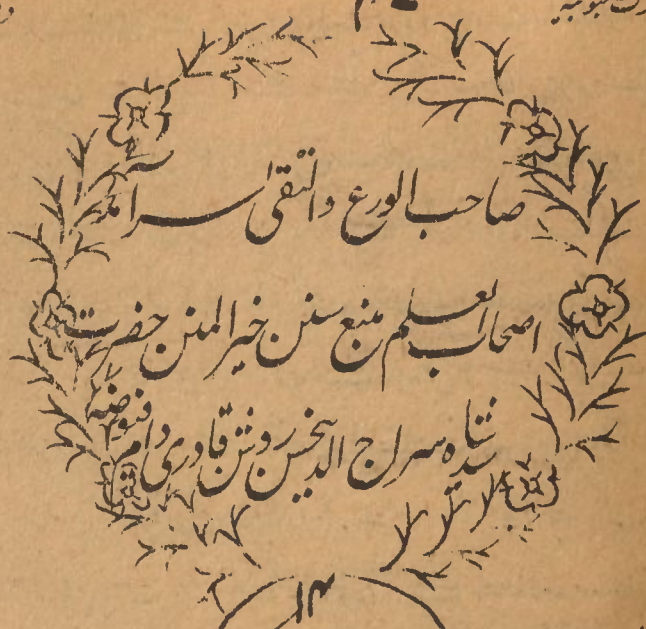 صاحب الورع والتقى سرآمد
اصحاب العلم منبع سنن خیر المنن حضرت
شاه سراج الدین حسن روشن قادری دام فیوضه
۱۴